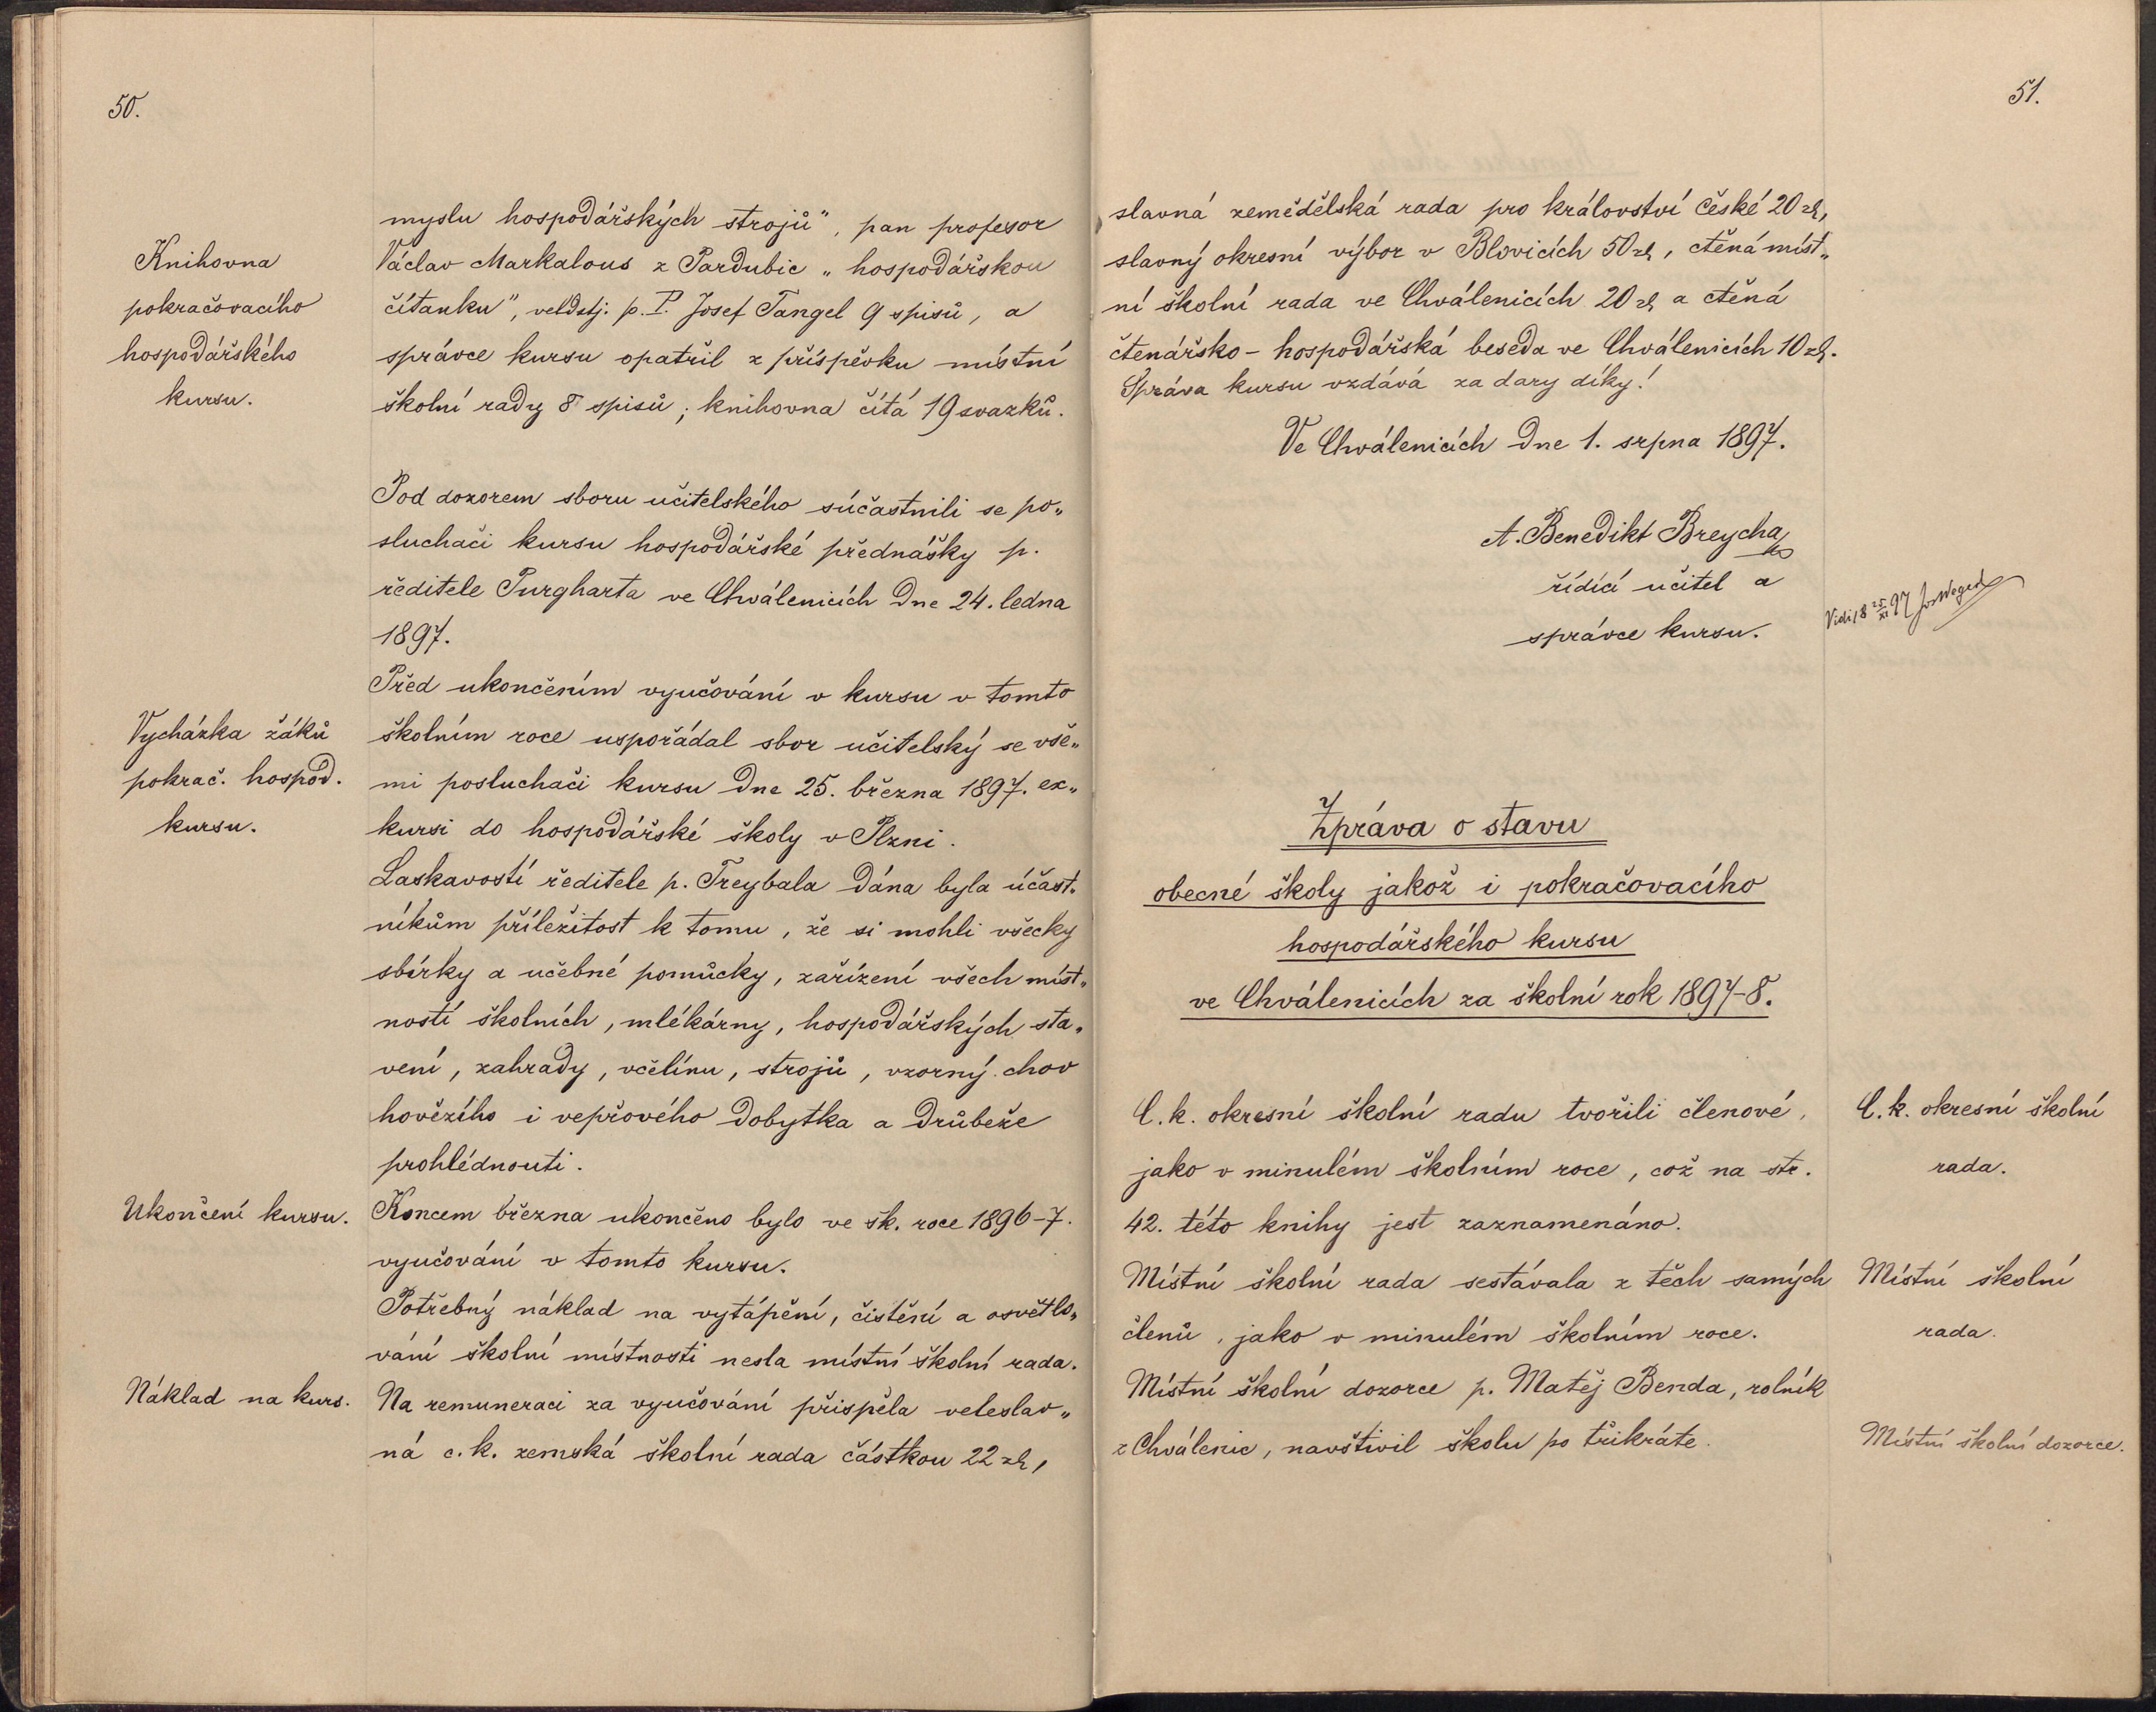 50.
Knihovna
pokračovacího
hospodářského
kursu.
myslu hospodářských strojů", pan profesor
Václav Markalous z Pardubic „hospodářskou
čítanku", veldstj. p. P. Josef Tangel 9 spisů, a
správce kursu opatřil z příspěvku místní
školní rady 8 spisů; knihovna čítá 19 svazků.
Pod dozorem sboru učitelského súčastnili se po„
sluchači kursu hospodářské přednášky p.
ředitele Purgharta ve Chválenicích dne 24. ledna
1897.
Před ukončením vyučování v kursu v tomto
Vycházka žáků
pokrač. hospod.
kursu.
školním roce uspořádal sbor učitelský se vše„
mi posluchači kursu dne 25. března 1897. ex„
kursi do hospodářské školy v Plzni.
Laskavostí ředitele p. Treybala dána byla účast„
níkům příležitost k tomu, že si mohli všecky
sbírky a učebné pomůcky, zařízení všech míst„
ností školních, mlékárny, hospodářských sta„
vení, zahrady, včelínu, strojů, vzorný chov
hovězího i vepřového dobytka a drůbeže
prohlédnouti.
Ukončení kursu.
Koncem března ukončeno bylo ve šk. roce 1896-7.
vyučování v tomto kursu.
Potřebný náklad na vytápění, čistění a osvětlo„
vání školní místnosti nesla místní školní rada.
Náklad na kurs.
Na remuneraci za vyučování přispěla veleslav„
ná c. k. zemská školní rada částkou 22 zl,
51.
slavná zemědělská rada pro království České 20 zl,
slavný okresní výbor v Blovicích 50 zl, ctěná míst„
ní školní rada ve Chválenicích 20 zl a ctěná
čtenářsko-hospodářská beseda ve Chválenicích 10 zl.
Správa kursu vzdává za dary díky!
Ve Chválenicích dne 1. srpna 1897.
A. Benedikt Breycha
řídící učitel a
správce kursu.
Vidi, 18 25/XI 97
Zpráva o stavu
obecné školy jakož i pokračovacího
hospodářského kursu
ve Chválenicích za školní rok 1897-8.
C. k. okresní školní radu tvořili členové,
jako v minulém školním roce, což na str.
42. této knihy jest zaznamenáno.
C. k. okresní školní
rada.
Místní školní rada sestávala z těch samých
členů, jako v minulém školním roce.
Místní školní
rada.
Místní školní dozorce p. Matěj Benda, rolník
z Chválenic, navštivil školu po třikráte.
Místní školní dozorce.